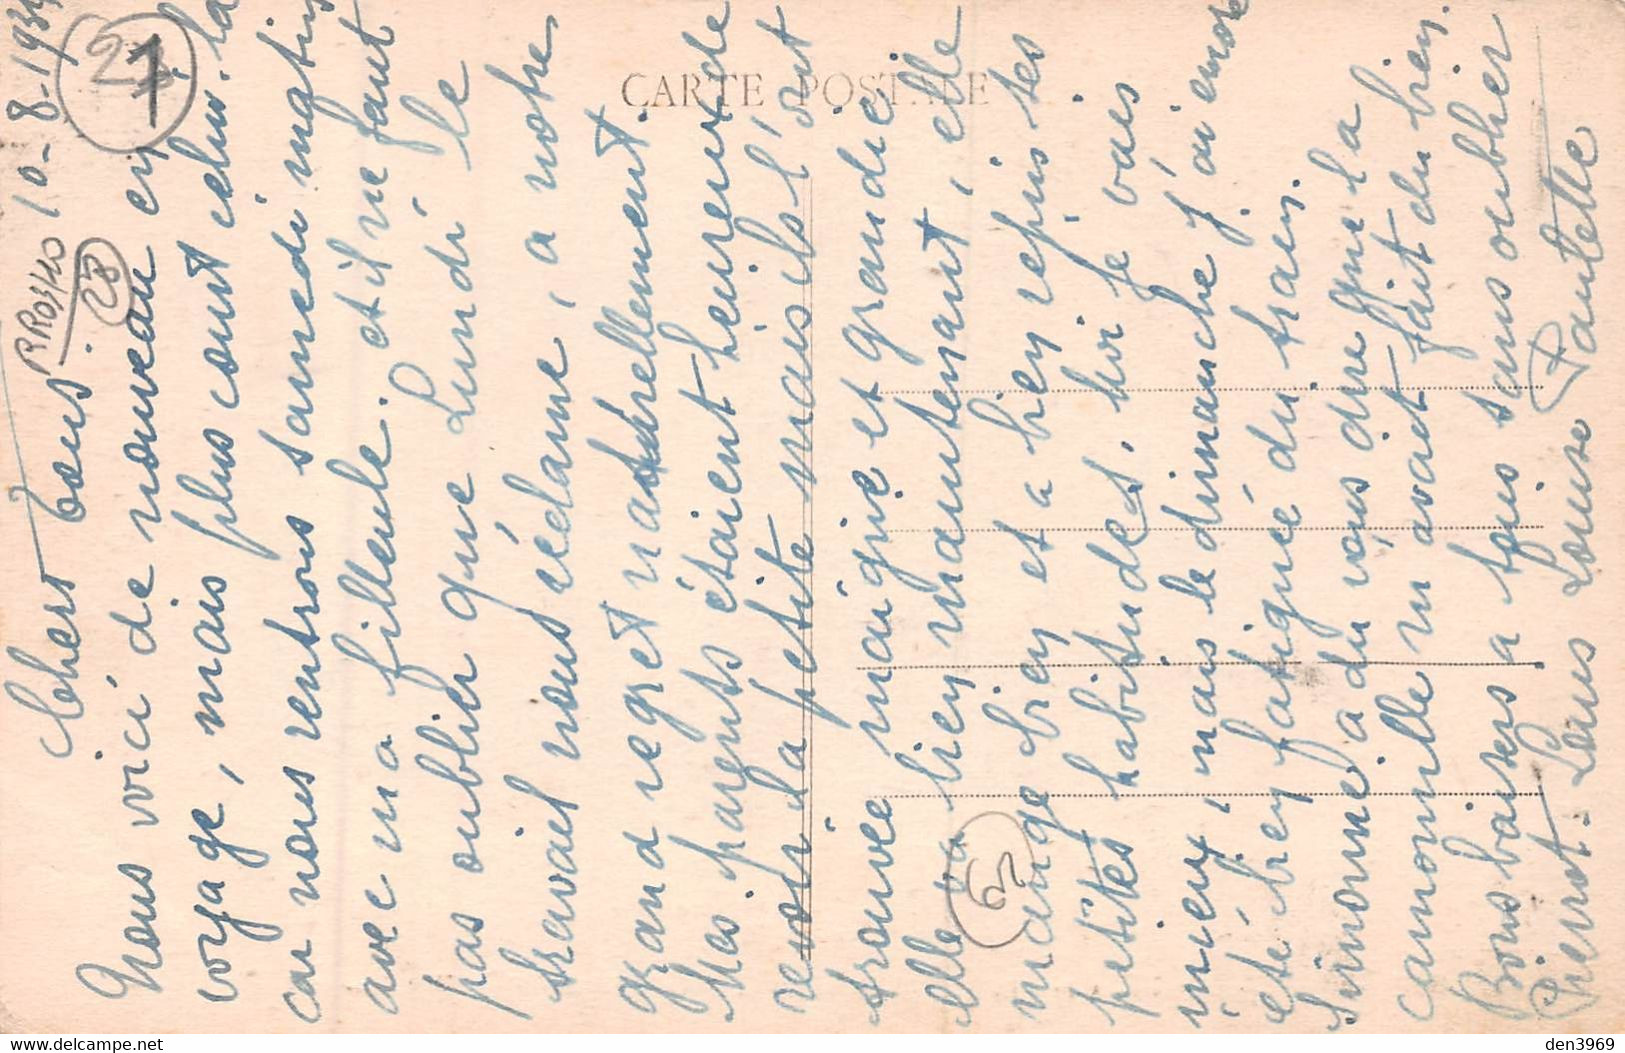 10-8-1934
Chers tous.
Nous voici de nouveau en
voyage, mais plus court celui-là
car nous rentrons samedi matin
avec ma filleule. et il ne faut
pas oublier que Lundi le
travail nous réclame, a notre
grand regret naturellement.
Mes parents étaient heureux de
revoir la petite mais ils l'ont
trouvée maigrie et grandie
elle va bien maintenant, elle
mange bien et a bien repris tes
petites habitudes. moi je vais
mieux, mais le dimanche j'ai encore
été bien fatigué du train.
Simone a du vous dire que la
camomille m'avait fait du bien.
Bons baisers a tous sans oublier
Pierrot. Louis Louise Paulette
CARTE POSTALE
RROS/40
28
1
den3969
delcampe.net